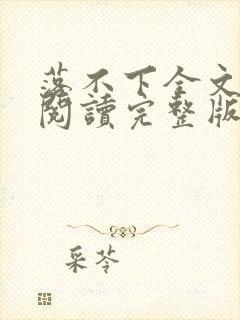 落不下全文
閱讀完整版
采苓